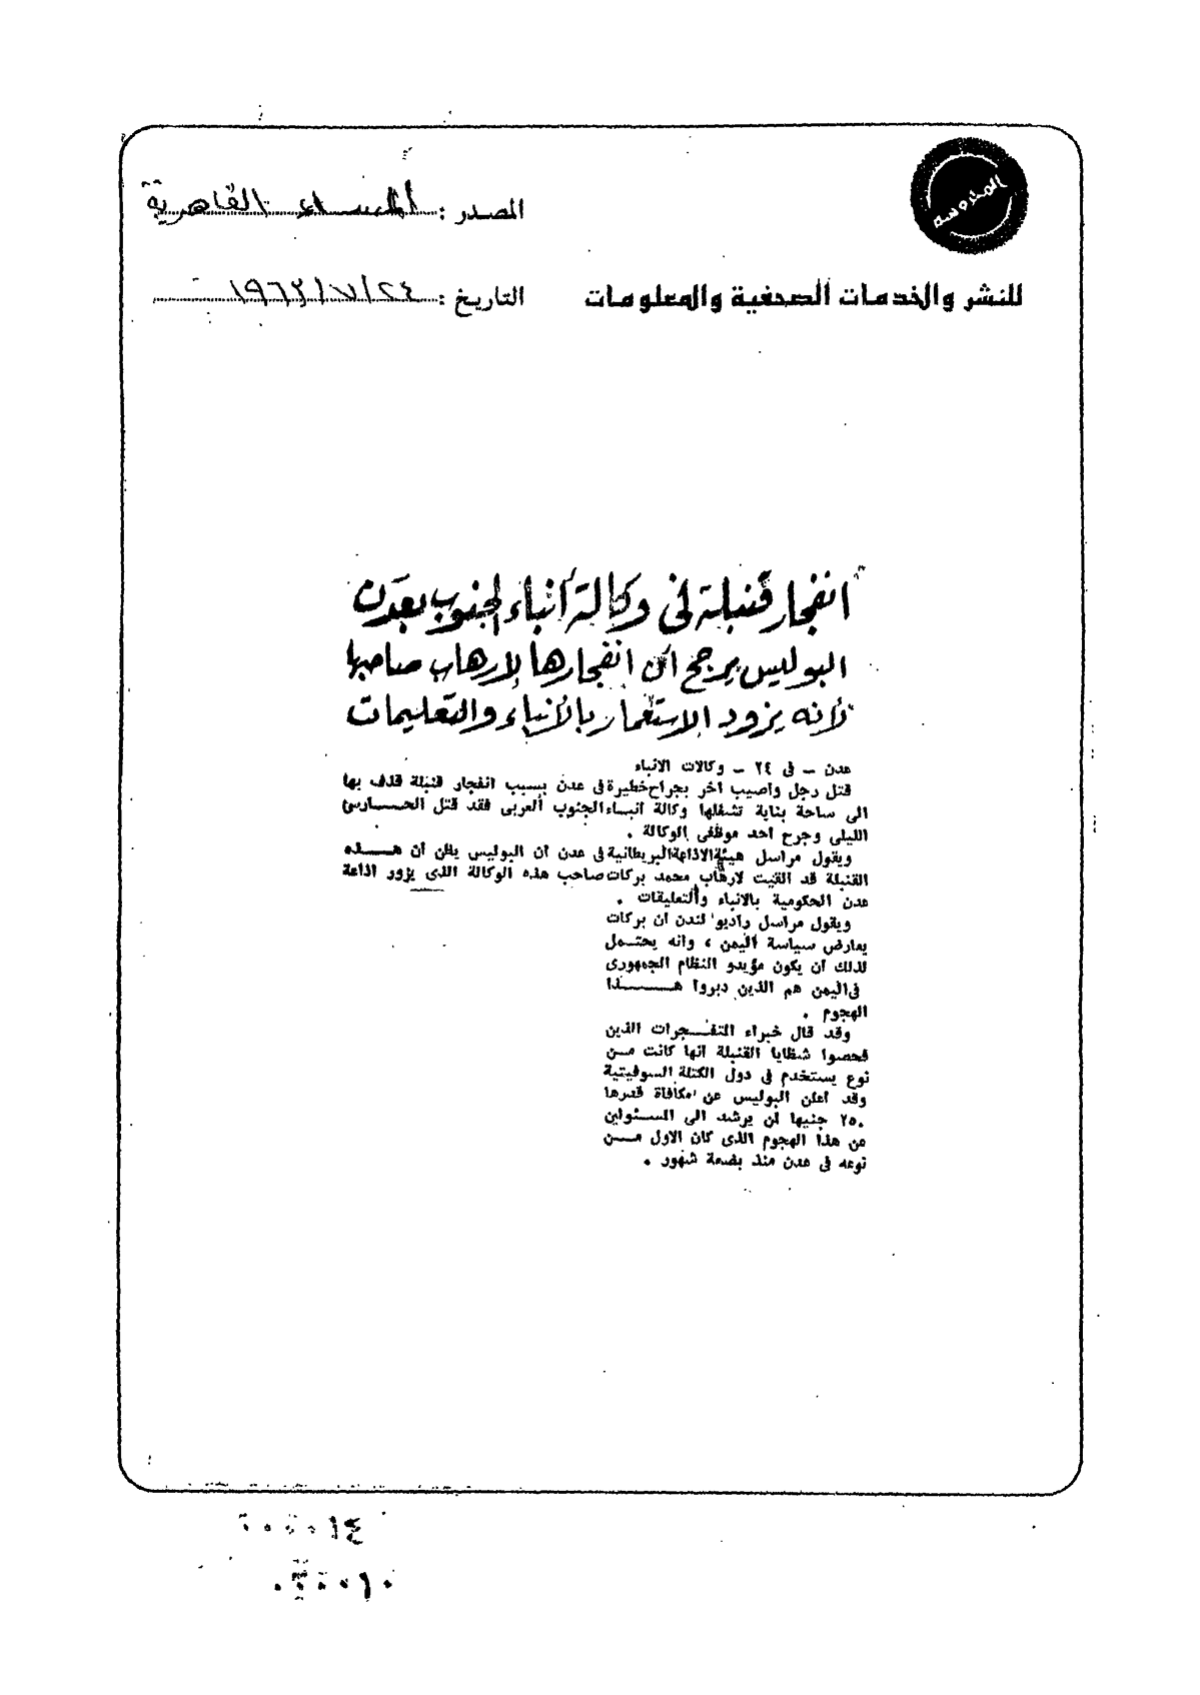 المحروسة
المصدر : المساء القاهرية
للنشر والخدمات الصحفية والمعلومات
التاريخ : ٢٤ / ٧ / ١٩٦٣
انفجار قنبلة فى وكالة أنباء الجنوب بعدن
البوليس يرجح أن انفجارها لإرهاب صاحبها
لأنه يزود الاستعمار بالأنباء والتعليمات
عدن - فى ٢٤ - وكالات الانباء
قتل رجل واصيب آخر بجراح خطيرة فى عدن بسبب انفجار قنبلة قذف بها
الى ساحة بناية تشغلها وكالة انباء الجنوب العربى فقد قتل الحارس
الليلى وجرح احد موظفى الوكالة .
ويقول مراسل هيئة الاذاعة البريطانية فى عدن ان البوليس يظن ان هذه
القنبلة قد القيت لارهاب محمد بركات صاحب هذه الوكالة الذى يزور اذاعة
عدن الحكومية بالانباء والتعليقات .
ويقول مراسل راديو لندن ان بركات
يعارض سياسة اليمن ، وانه يحتمل
لذلك أن يكون مؤيدو النظام الجمهورى
فى اليمن هم الذين دبروا هذا
الهجوم .
وقد قال خبراء التفجرات الذين
فحصوا شظايا القنبلة انها كانت من
نوع يستخدم فى دول الكتلة السوفيتية
وقد اعلن البوليس عن مكافاة قدرها
٢٥٠ جنيها لمن يرشد الى المسئولين
عن هذا الهجوم الذى كان الاول من
نوعه فى عدن منذ بضعة شهور .